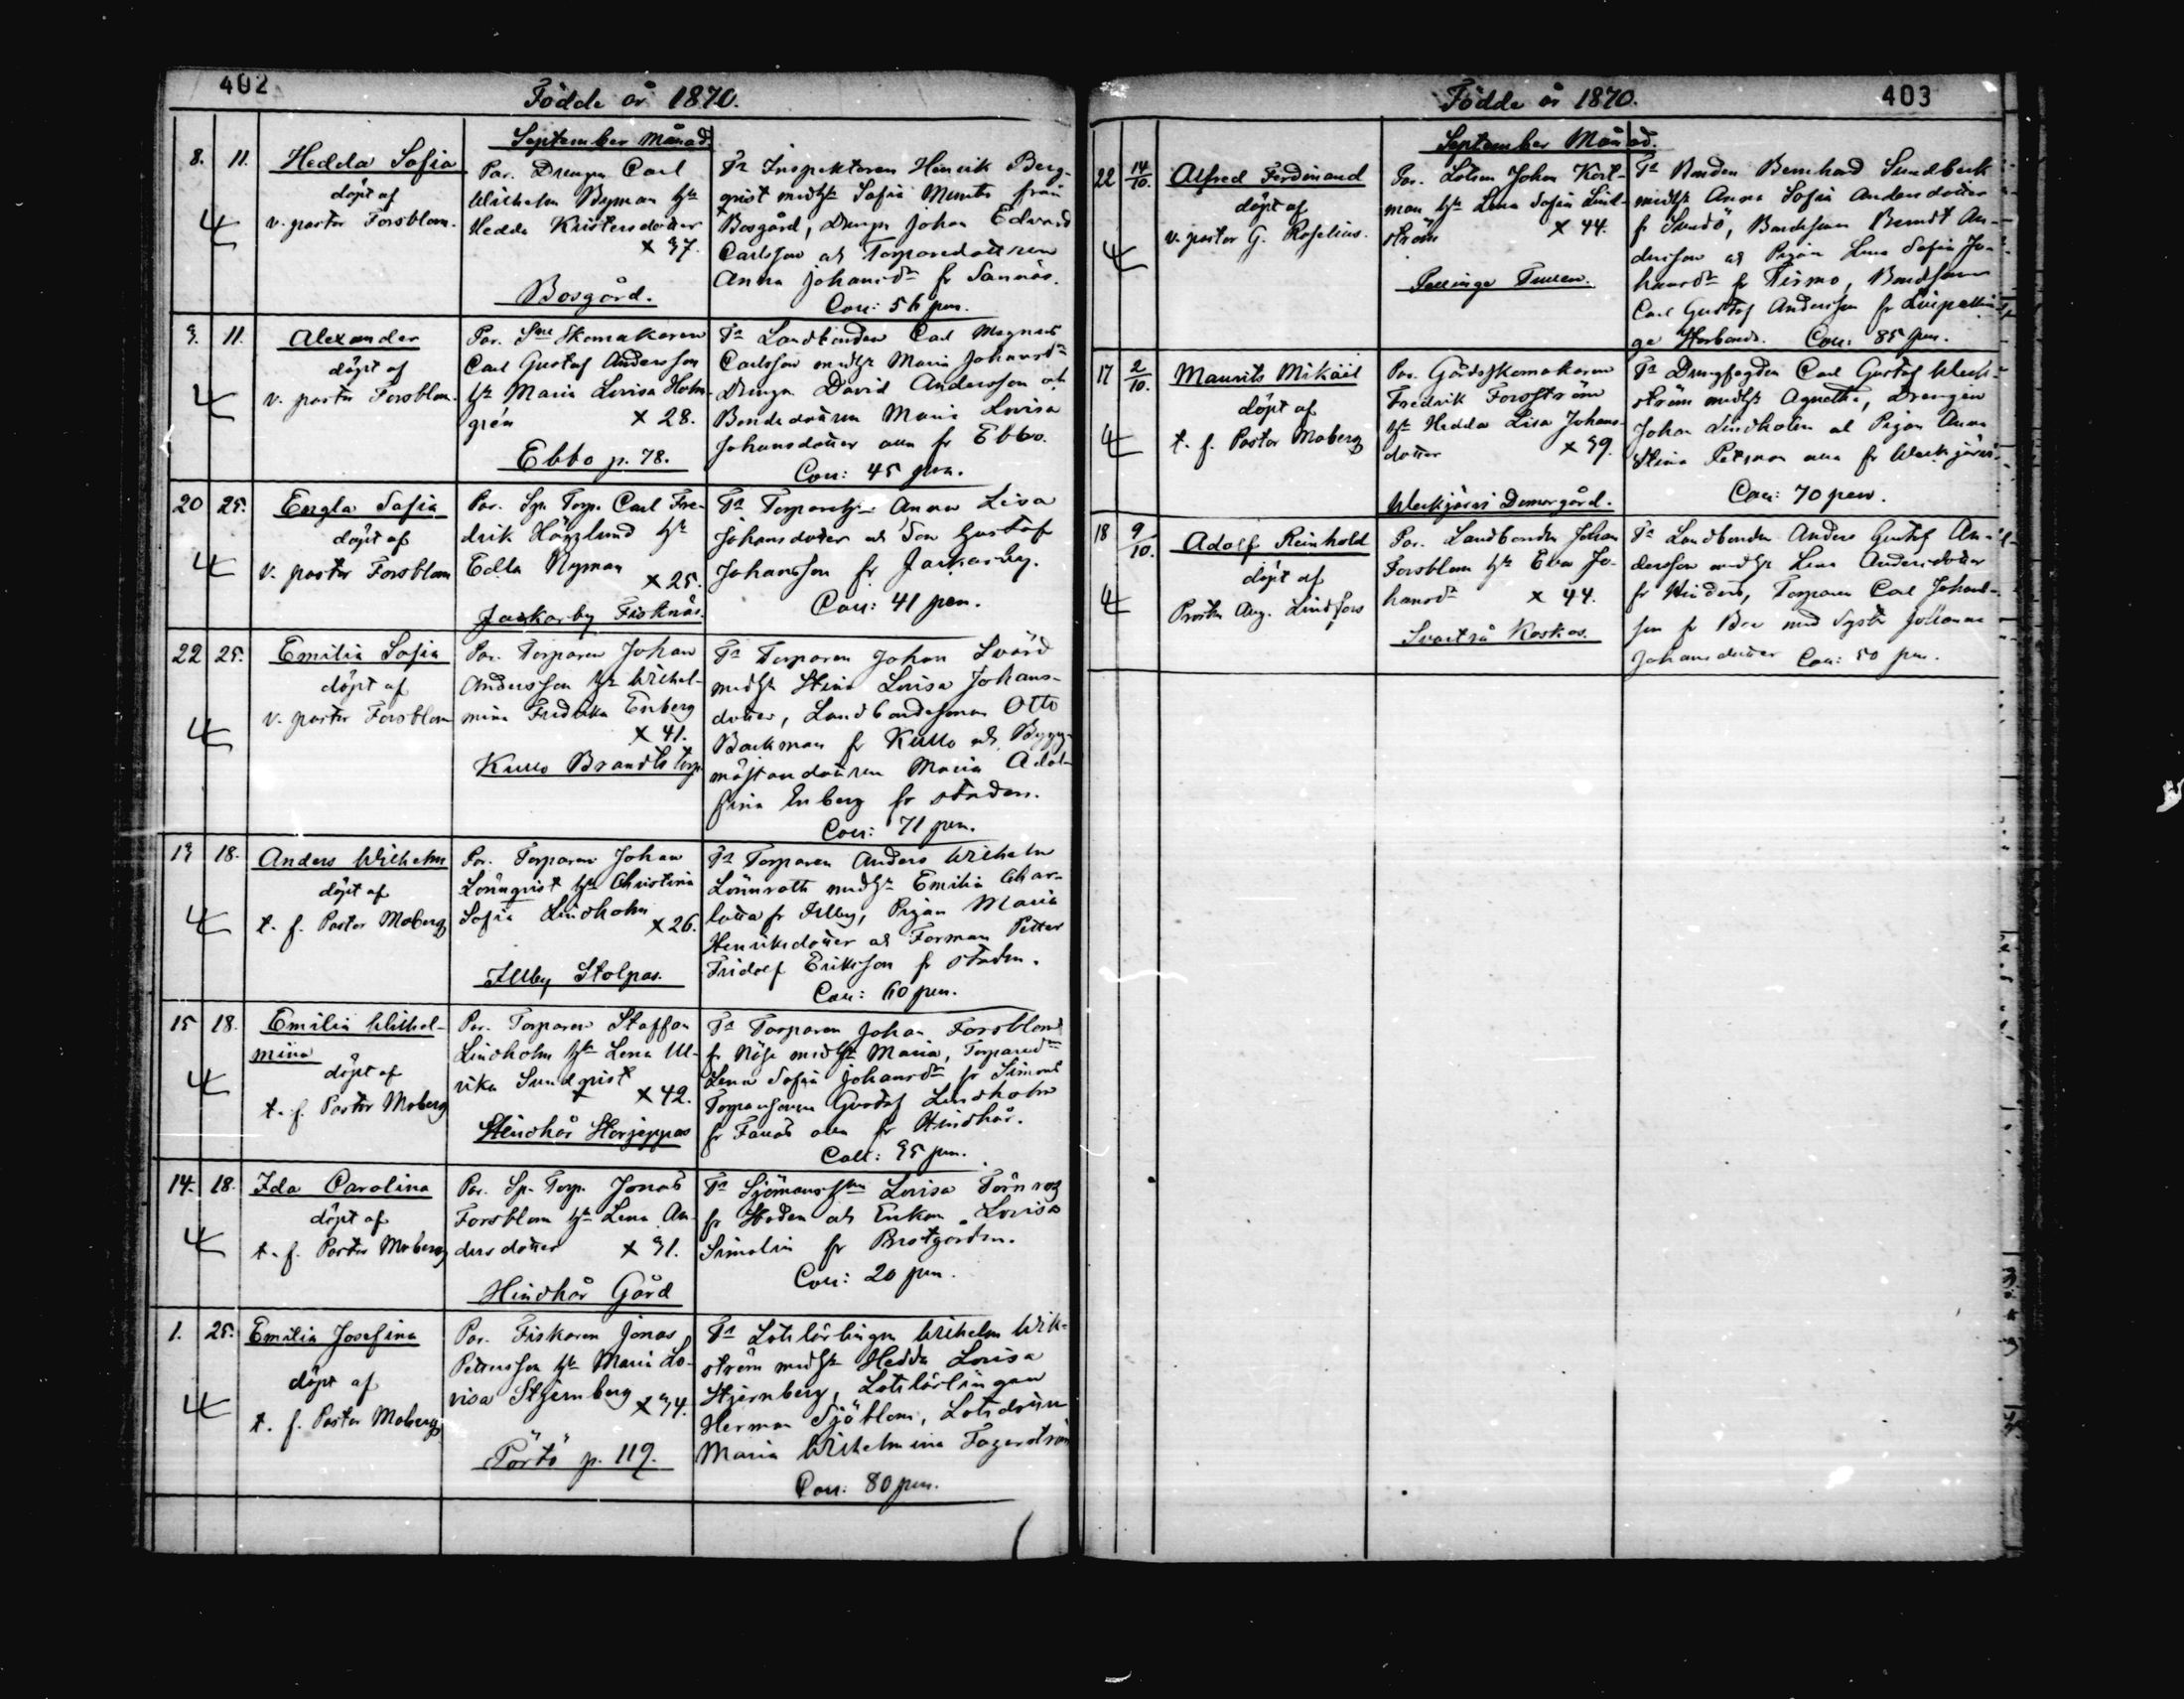 402
Födde år 1870.
September Månad.
8. 11. Hedda Sofia
döpt af
v. pastor Forsblom.
Par. Drengen Carl
Wilhelm Byman h:n
Hedda Kristersdotter
x 37.
Bosgård.
Inspektoren Henrik Berg-
qvist Sofia från
Bosgård, Drengen Johan Edvard
Carlsson och Torparedottren
Anna Johansd:r fr Sannäs.
Coll: 56 pen.
9. 11. Alexander
döpt af
v. pastor Forsblom.
Par. Skomakaren
Carl Gustaf Andersson
Maria Lovisa Holm-
grén x 28.
Ebbo p. 78.
Landbonden Carl Magnus
Carlsson Maria Johansd:r
Drengen David Andersson och
Bondedottren Maria Lovisa
Johansdotter alla fr Ebbo.
Coll: 45 pen.
20 25. Engla Sofia
döpt af
v. pastor Forsblom
Par. Sp. Torp. Carl Fre-
drik Höglund
Edla Nyman x 25.
Jackarby Fisknäs.
Anna Lisa
Johansdotter Gustaf
Johansson fr Jackarby.
Coll: 41 pen.
22 25. Emilia Sofia
döpt af
v. pastor Forsblom
Par. Torparen Johan
Andersson Wilhel-
mina Fredrika Enberg
x 41.
Kullo Brandts torp
Torparen Johan Svärd
Stina Lovisa Johans-
dotter, Landbondesonen Otto
Backman fr Kullo och Bygg-
mästaredottren Maria Adol-
fina Enberg fr staden.
Coll: 71 pen.
13 18. Anders Wilhelm
döpt af
t. f. Pastor Moberg
Par. Torparen Johan
Lönnqvist Christina
Sofia Lindholm x 26.
Illby Stolpas.
Torparen Anders Wilhelm
Lönnroth Emilia Char-
lotta fr Illby, Pigan Maria
Henriksdotter och Forman Petter
Fridolf Eriksson fr staden.
Coll: 60 pen.
15 18. Emilia Wilhel-
mina
döpt af
t. f. Pastor Moberg
Par. Torparen Staffan
Lindholm Lena Ul-
rika Sundqvist
x 42.
Hindhår
Torparen Johan Forsblom
fr Maria,
Lena Sofia Johansd:r fr Simons
Torparesonen Gustaf Lindholm
fr alla fr Hindhår.
Coll: 95 pen.
14. 18. Ida Carolina
döpt af
t. f. Pastor Moberg
Par. Sp. Torp. Jonas
Forsblom Lena An-
dersdotter x 31.
Hindhår Gård
Lovisa Törnroos
fr staden och Enkan Lovisa
Simolin fr Prostgården.
Coll: 20 pen.
1. 25. Emilia Josefina
döpt af
t. f. Pastor Moberg
Par. Fiskaren Jonas
Pettersson Maria Lo-
visa Stjernberg x 34.
Pörtö p. 119.
Lotslärlingen Wilhelm Wik-
ström Hedda Lovisa
Stjernberg, Lotslärlingen
Herman Sjöblom, Lotsdottren
Maria Wilhelmina Fagerström
Coll: 80 pen.
Födde år 1870.
403
September Månad.
22 14/10. Alfred Ferdinand
döpt af
v. pastor G. Roselius.
Par. Lotsen Johan Kort-
man Lena Sofia Lind-
ström x 44.
Pellinge
Bonden Bernhard Sundbeck
Anna Sofia Andersdotter
fr Sundö, Bondesonen Berndt An-
dersson och Pigan Lena Sofia Jo-
hansd:r fr Tirmo, Bondsonen
Carl Gustaf Andersson fr Lillpellin-
ge Coll: 85 pen.
17 2/10. Maurits Mikael
döpt af
t. f. Pastor Moberg
Par. Gårdsskomakaren
Fredrik Forsström
Hedda Lisa Johans-
dotter x 39.
Weckjärvi Domargård.
Drengfogden Carl Gustaf Weck-
ström Agnetha, Drengen
Johan Lindholm och Pigan Anna
Stina Petsman alla fr Weckjärvi.
Coll: 70 pen.
18 9/10. Adolf Reinhold
döpt af
Prosten Aug. Lindfors
Par. Landbonden Johan
Forsblom Eva Jo-
hansd:r x 44.
Svartså Koskas.
Landbonden Anders Gustaf An-
dersson Lena Andersdotter
fr Torparen Carl Johans-
son fr Boe med Syster Johanna
Johansdotter Coll: 50 pen.